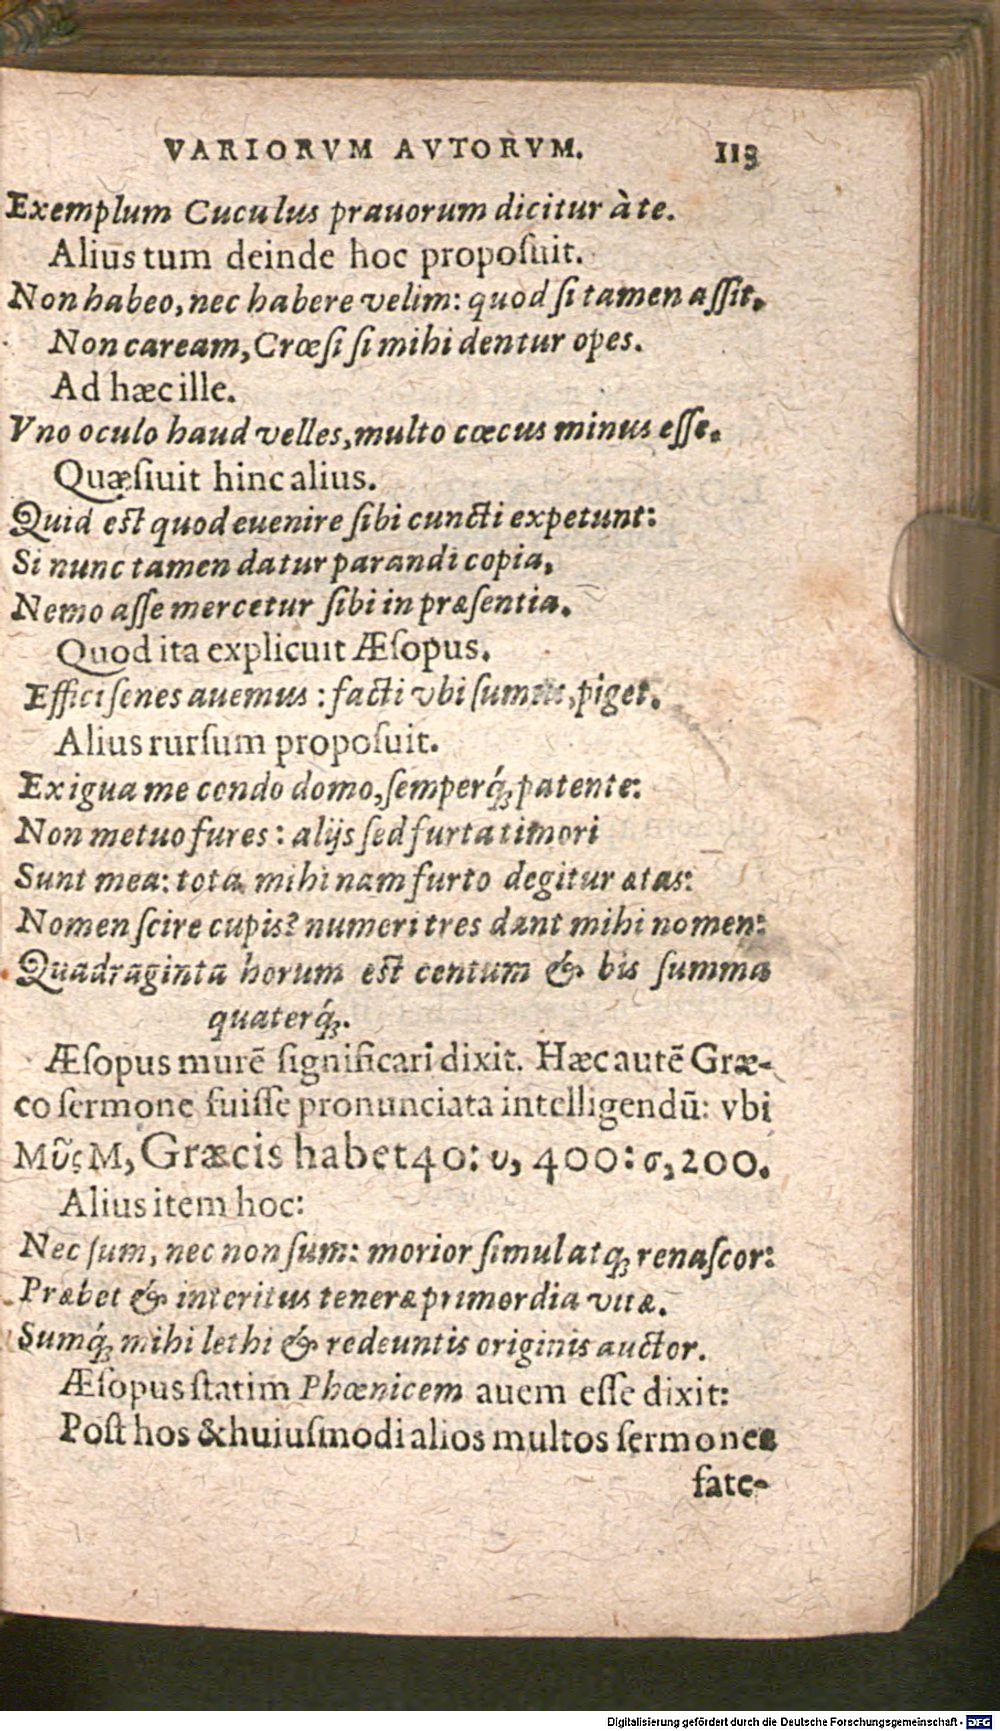 VARIORVM AVTORVM. 113
Exemplum Cuculus prauorum dicitur à te.
Alius tum deinde hoc proposuit.
Non habeo, nec habere velim: quod si tamen assit,
Non caream, Crœsi si mihi dentur opes.
Ad hæc ille.
Vno oculo haud velles, multo cœcus minus esse.
Quæsiuit hinc alius.
Quid est quod euenire sibi cuncti expetunt:
Si nunc tamen datur parandi copia,
Nemo asse mercetur sibi in præsentia.
Quod ita explicuit Æsopus.
Effici senes auemus: facti vbi sumus, piget.
Alius rursum proposuit.
Exigua me condo domo, semperq́; patente:
Non metuo fures: alijs sed furta timori
Sunt mea: tota mihi nam furto degitur ætas:
Nomen scire cupis? numeri tres dant mihi nomen:
Quadraginta horum est centum & bis summa
quaterq́;.
Æsopus murē significari dixit. Hæc autē Græ-
co sermone fuisse pronunciata intelligendū: vbi
Μῦς Μ, Græcis habet 40: υ, 400: σ, 200.
Alius item hoc:
Nec sum, nec non sum: morior simul atq; renascor:
Præbet & interitus teneræ primordia vitæ.
Sumq́; mihi lethi & redeuntis originis auctor.
Æsopus statim Phœnicem auem esse dixit:
Post hos & huiusmodi alios multos sermones
fate-
Digitalisierung gefördert durch die Deutsche Forschungsgemeinschaft - DFG